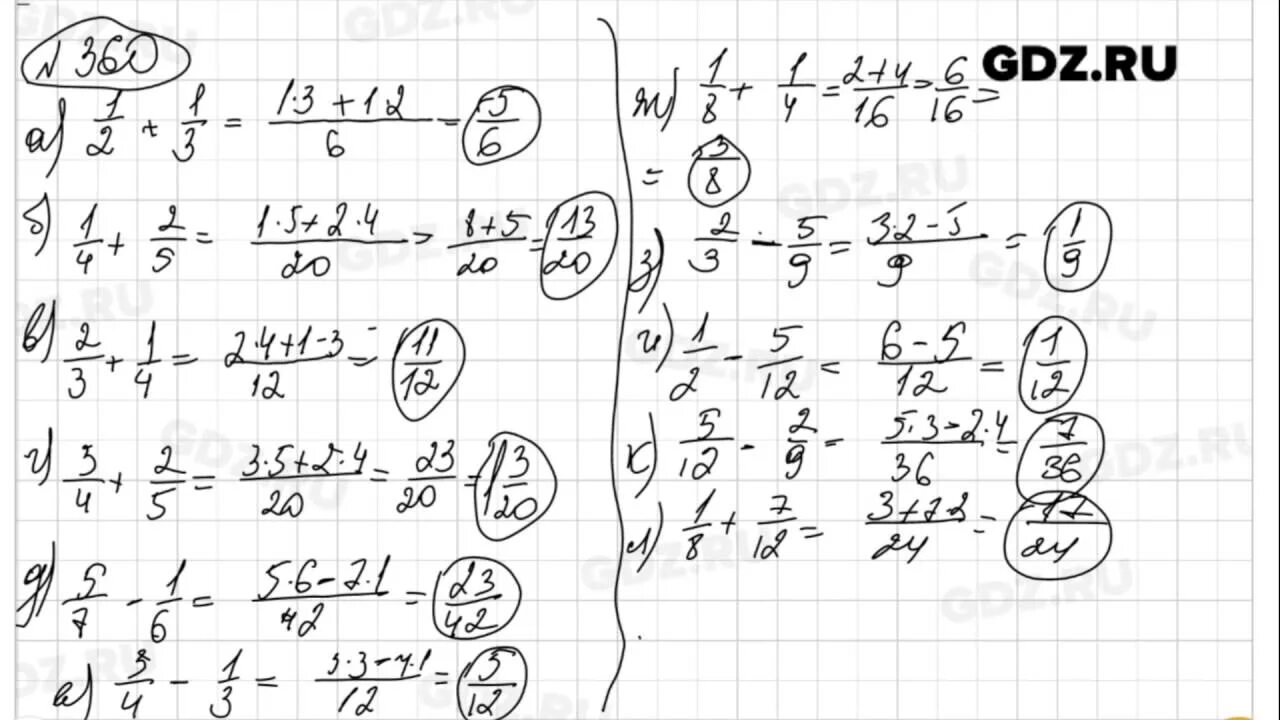 N 360
а) 1/2 + 1/3 = (1·3 + 1·2)/6 = 5/6
б) 1/4 + 2/5 = (1·5 + 2·4)/20 = (8+5)/20 = 13/20
в) 2/3 + 1/4 = (2·4 + 1·3)/12 = 11/12
г) 3/4 + 2/5 = (3·5 + 2·4)/20 = 23/20 = 1 3/20
д) 5/7 - 1/6 = (5·6 - 7·1)/42 = 23/42
е) 3/4 - 1/3 = (3·3 - 4·1)/12 = 5/12
GDZ.RU
ж) 1/8 + 1/4 = (2+4)/16 = 6/16 =
= 3/8
з) 2/3 - 5/9 = (3·2 - 5)/9 = 1/9
и) 1/2 - 5/12 = (6 - 5)/12 = 1/12
к) 5/12 - 2/9 = (5·3 - 2·4)/36 = 7/36
л) 1/8 + 7/12 = (3 + 7·2)/24 = 17/24